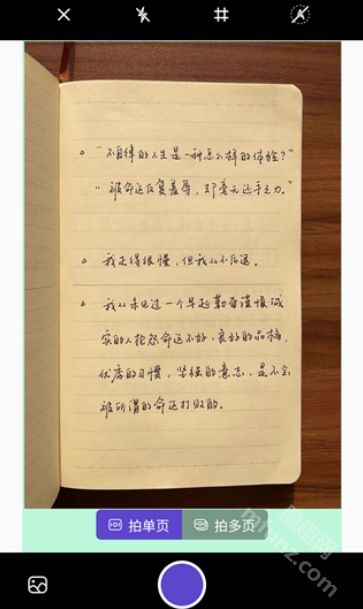 "不自律的人生是一种怎么样的体验？"
"被命运反复羞辱，却毫无还手之力。"
我走得很慢，但我从不后退。
我从未见过一个早起勤奋谨慎诚
实的人抱怨命运不好，良好的品格，
优良的习惯，坚强的意志，是不会
被所谓的命运打败的。
拍单页 拍多页
随趣网